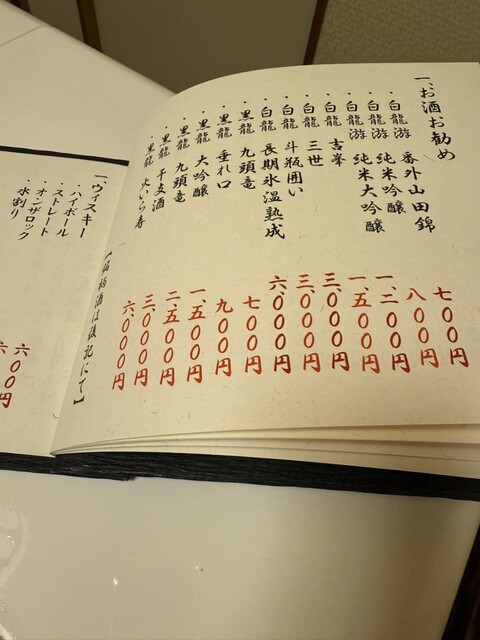 一、お酒お勧め
・白龍游 番外山田錦 七〇〇円
・白龍游 純米吟醸 八〇〇円
・白龍游 純米大吟醸 一、二〇〇円
・白龍 吉峯 一、五〇〇円
・白龍 三世 三、〇〇〇円
・白龍 斗瓶囲い 三、〇〇〇円
・白龍 長期氷温熟成 六、〇〇〇円
・黒龍 九頭竜 七〇〇円
・黒龍 垂れ口 九〇〇円
・黒龍 大吟醸 一、五〇〇円
・黒龍 九頭竜 二、五〇〇円
・黒龍 干支酒 三、〇〇〇円
・黒龍 火いら寿 六、〇〇〇円
酒は後記にて】
一、ウィスキー
・ハイボール 六〇〇円
・ストレート
・オンザロック
・水割り